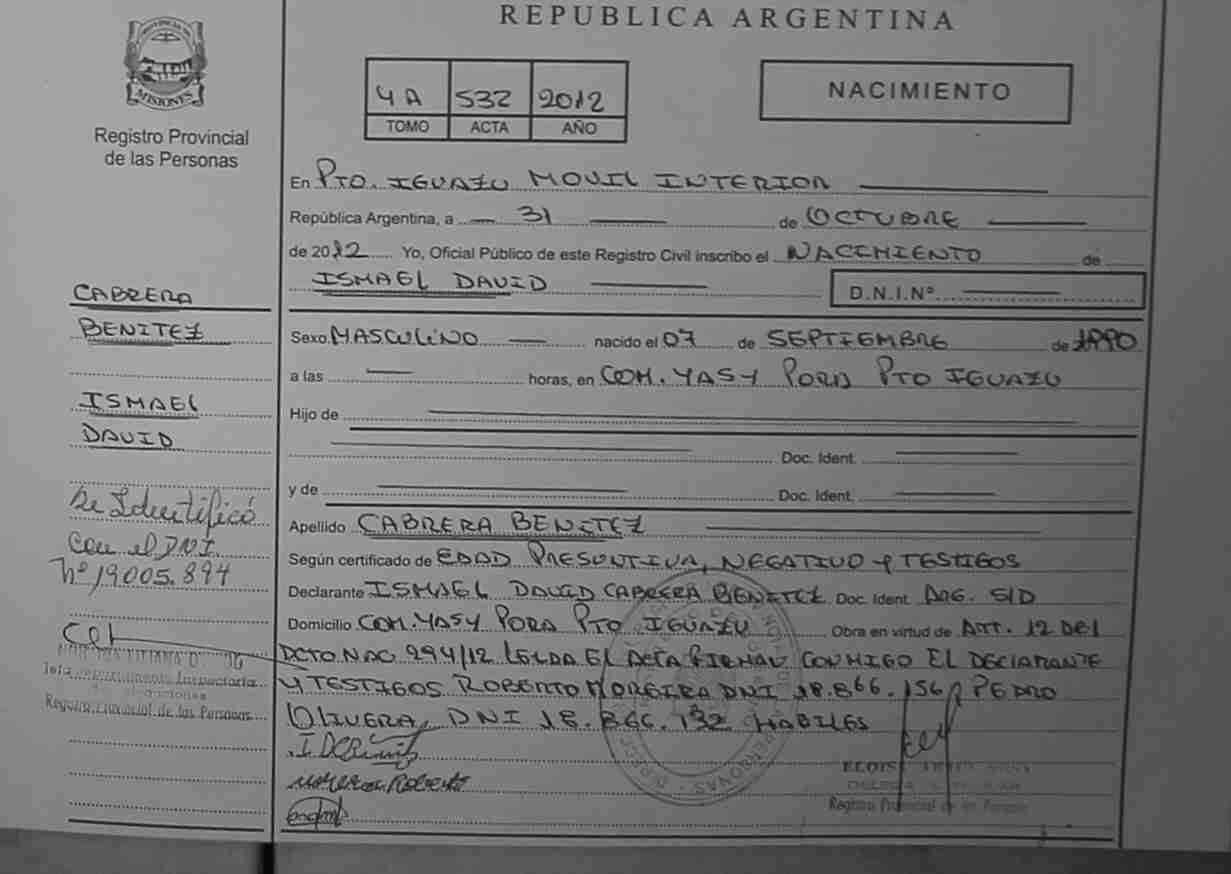 REPUBLICA ARGENTINA
PROVINCIA DE
MISIONES
Registro Provincial
de las Personas
4A 532 2012
TOMO ACTA AÑO
NACIMIENTO
En PTO. IGUAZU MOVIL INTERIOR
República Argentina, a 31 de OCTUBRE
de 2012 Yo, Oficial Público de este Registro Civil inscribo el NACIMIENTO de
ISMAEL DAVID D.N.I.Nº
CABRERA
BENITEZ
ISMAEL
DAVID
Se Identificó
con el DNI
Nº 19005.894
Registro Provincial de las Personas
Sexo MASCULINO nacido el 07 de SEPTIEMBRE de 1990
a las horas, en COM. YASY PORA PTO IGUAZU
Hijo de
Doc. Ident.
y de Doc. Ident.
Apellido CABRERA BENITEZ
Según certificado de EDAD PRESUNTIVA, NEGATIVO y TESTIGOS
Declarante ISMAEL DAVID CABRERA BENITEZ Doc. Ident. ARG. S/D
Domicilio COM. YASY PORA PTO IGUAZU Obra en virtud de ATT. 12 DEL
DCTO NAC 294/12 LEIDA EL ACTA FIRMAN CONMIGO EL DECLARANTE
Y TESTIGOS ROBERTO MOREIRA DNI 18.866.156 PEDRO
OLIVERA, DNI 18.866.132 HABILES
Registro Provincial de las Personas